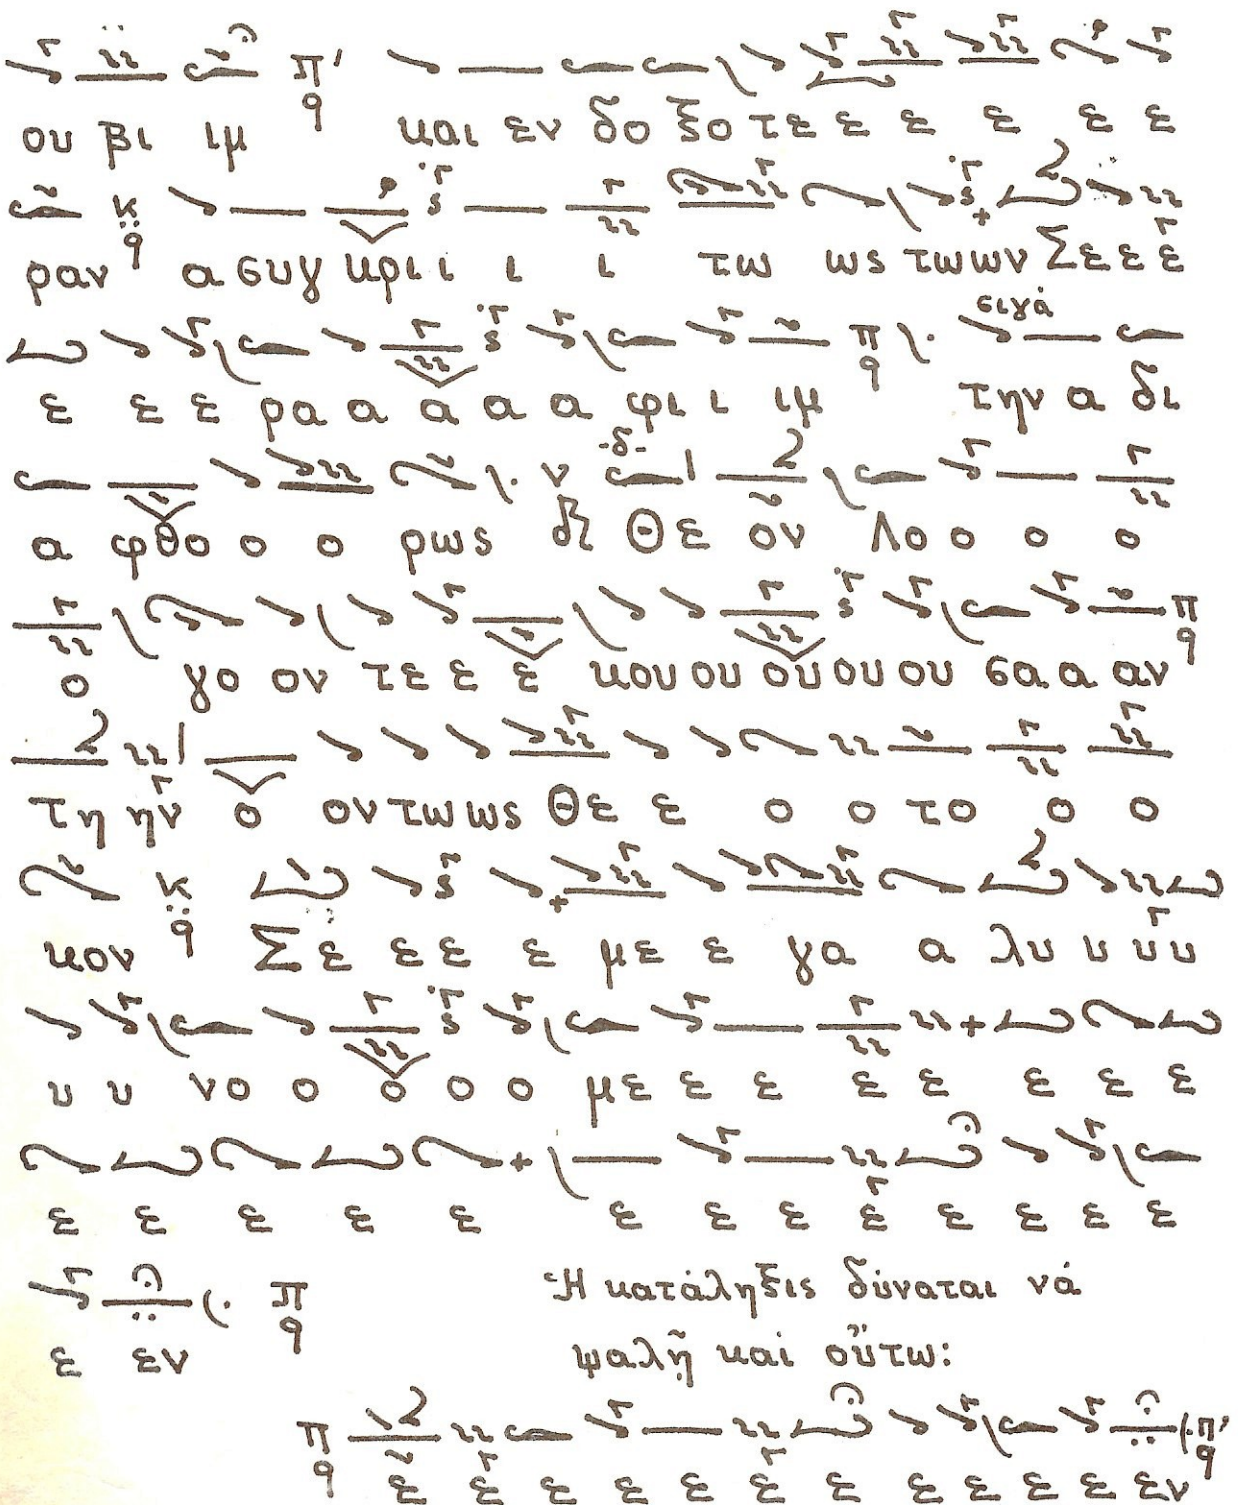 ου βι ιμ π' και εν δο ξο τε ε ε ε ε ε
ραν κ α συγ κρι ι ι ι τω ως τω ων Σε ε ε
σιγά
ε ε ε ρα α α α α φι ι ιμ π την α δι
α φθο ο ο ρως Θε ον Λο ο ο ο
ο γο ον τε ε ε κου ου ου ου ου σα α αν π
τη ην ο ον τω ως Θε ε ο ο το ο ο
κον κ Σε ε ε ε με ε γα α λυ υ υ υ
υ υ νο ο ο ο ο με ε ε ε ε ε ε ε
ε ε ε ε ε ε ε ε ε ε ε ε ε
ε εν π Ἡ κατάληξις δύναται νά
ψαλῆ καί οὕτω:
π ε ε ε ε ε ε ε ε ε ε ε εν π'